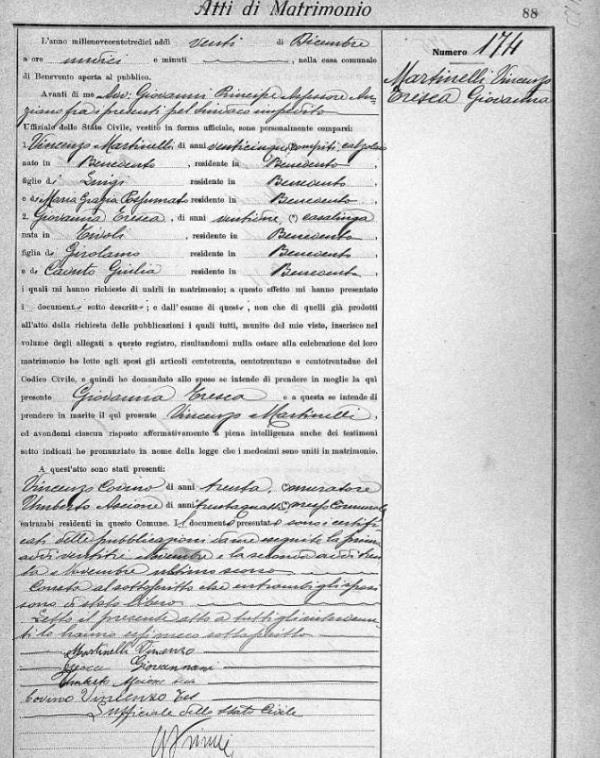 Atti di Matrimonio
88
Numero 174
Martinelli Vincenzo
Tresca Giovanna
L'anno millenovecentotredici addì venti di Dicembre
a ore undici e minuti , nella casa comunale
di Benevento aperta al pubblico.
Avanti di me Avv: Giovanni Principe Assessore An-
ziano fra i presenti pel Sindaco impedito
Uffiziale dello Stato Civile, vestito in forma ufficiale, sono personalmente comparsi:
1. Vincenzo Martinelli di anni venticinque compiti calzolaio
nato in Benevento, residente in Benevento,
figlio di Luigi residente in Benevento
e di Maria Grazia residente in Benevento
2. Giovanna Tresca, di anni ventuno (*) casalinga
nata in Tivoli, residente in Benevento,
figlia di Girolamo residente in Benevento
e di Caputo Giulia residente in Benevento,
i quali mi hanno richiesto di unirli in matrimonio; a questo effetto mi hanno presentato
i documenti sotto descritti; e dall'esame di questi, non che di quelli già prodotti
all'atto dalla richiesta delle pubblicazioni i quali tutti, munito del mio visto, inserisco nel
volume degli allegati a questo registro, risultandomi nulla ostare alla celebrazione del loro
matrimonio ho letto agli sposi gli articoli centotrenta, centotrentuno e centotrentadue del
Codice Civile, e quindi ho domandato allo sposo se intende di prendere in moglie la quì
presente Giovanna Tresca e a questa se intende di
prendere in marito il quì presente Vincenzo Martinelli,
ed avendomi ciascun risposto affermativamente a piena intelligenza anche dei testimoni
sotto indicati ho pronunziato in nome della legge che i medesimi sono uniti in matrimonio.
A quest'atto sono stati presenti:
Vincenzo di anni trenta, muratore
Umberto Ascione di anni trentaquattro Comunale
entrambi residenti in questo Comune. I documenti presentati sono i certifi-
cati delle pubblicazioni eseguite la prima
addì ventitre Novembre e la seconda addì tren-
ta Novembre ultimo scorso
Consta al sottoscritto che entrambi gli sposi
sono di stato libero
Letto il presente atto a tutti gli intervenu-
ti lo hanno sottoscritto
Martinelli Vincenzo
Tresca Giovanna
Umberto Ascione
Vincenzo Tes
L'ufficiale dello Stato Civile